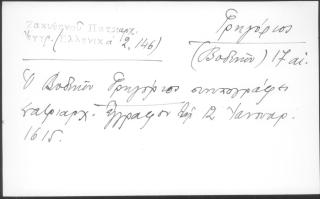 Ζακυθηνοῦ Πατριαρχ.
Ἔγγρ. (Ἑλληνικὰ 2, 146)
Γρηγόριος
(Βοδενῶν) 17 αἰ.
Ὁ Βοδενῶν Γρηγόριος συνυπογράφει
πατριαρχ. ἔγγραφον τῇ 12 Ἰανουαρ.
1615.